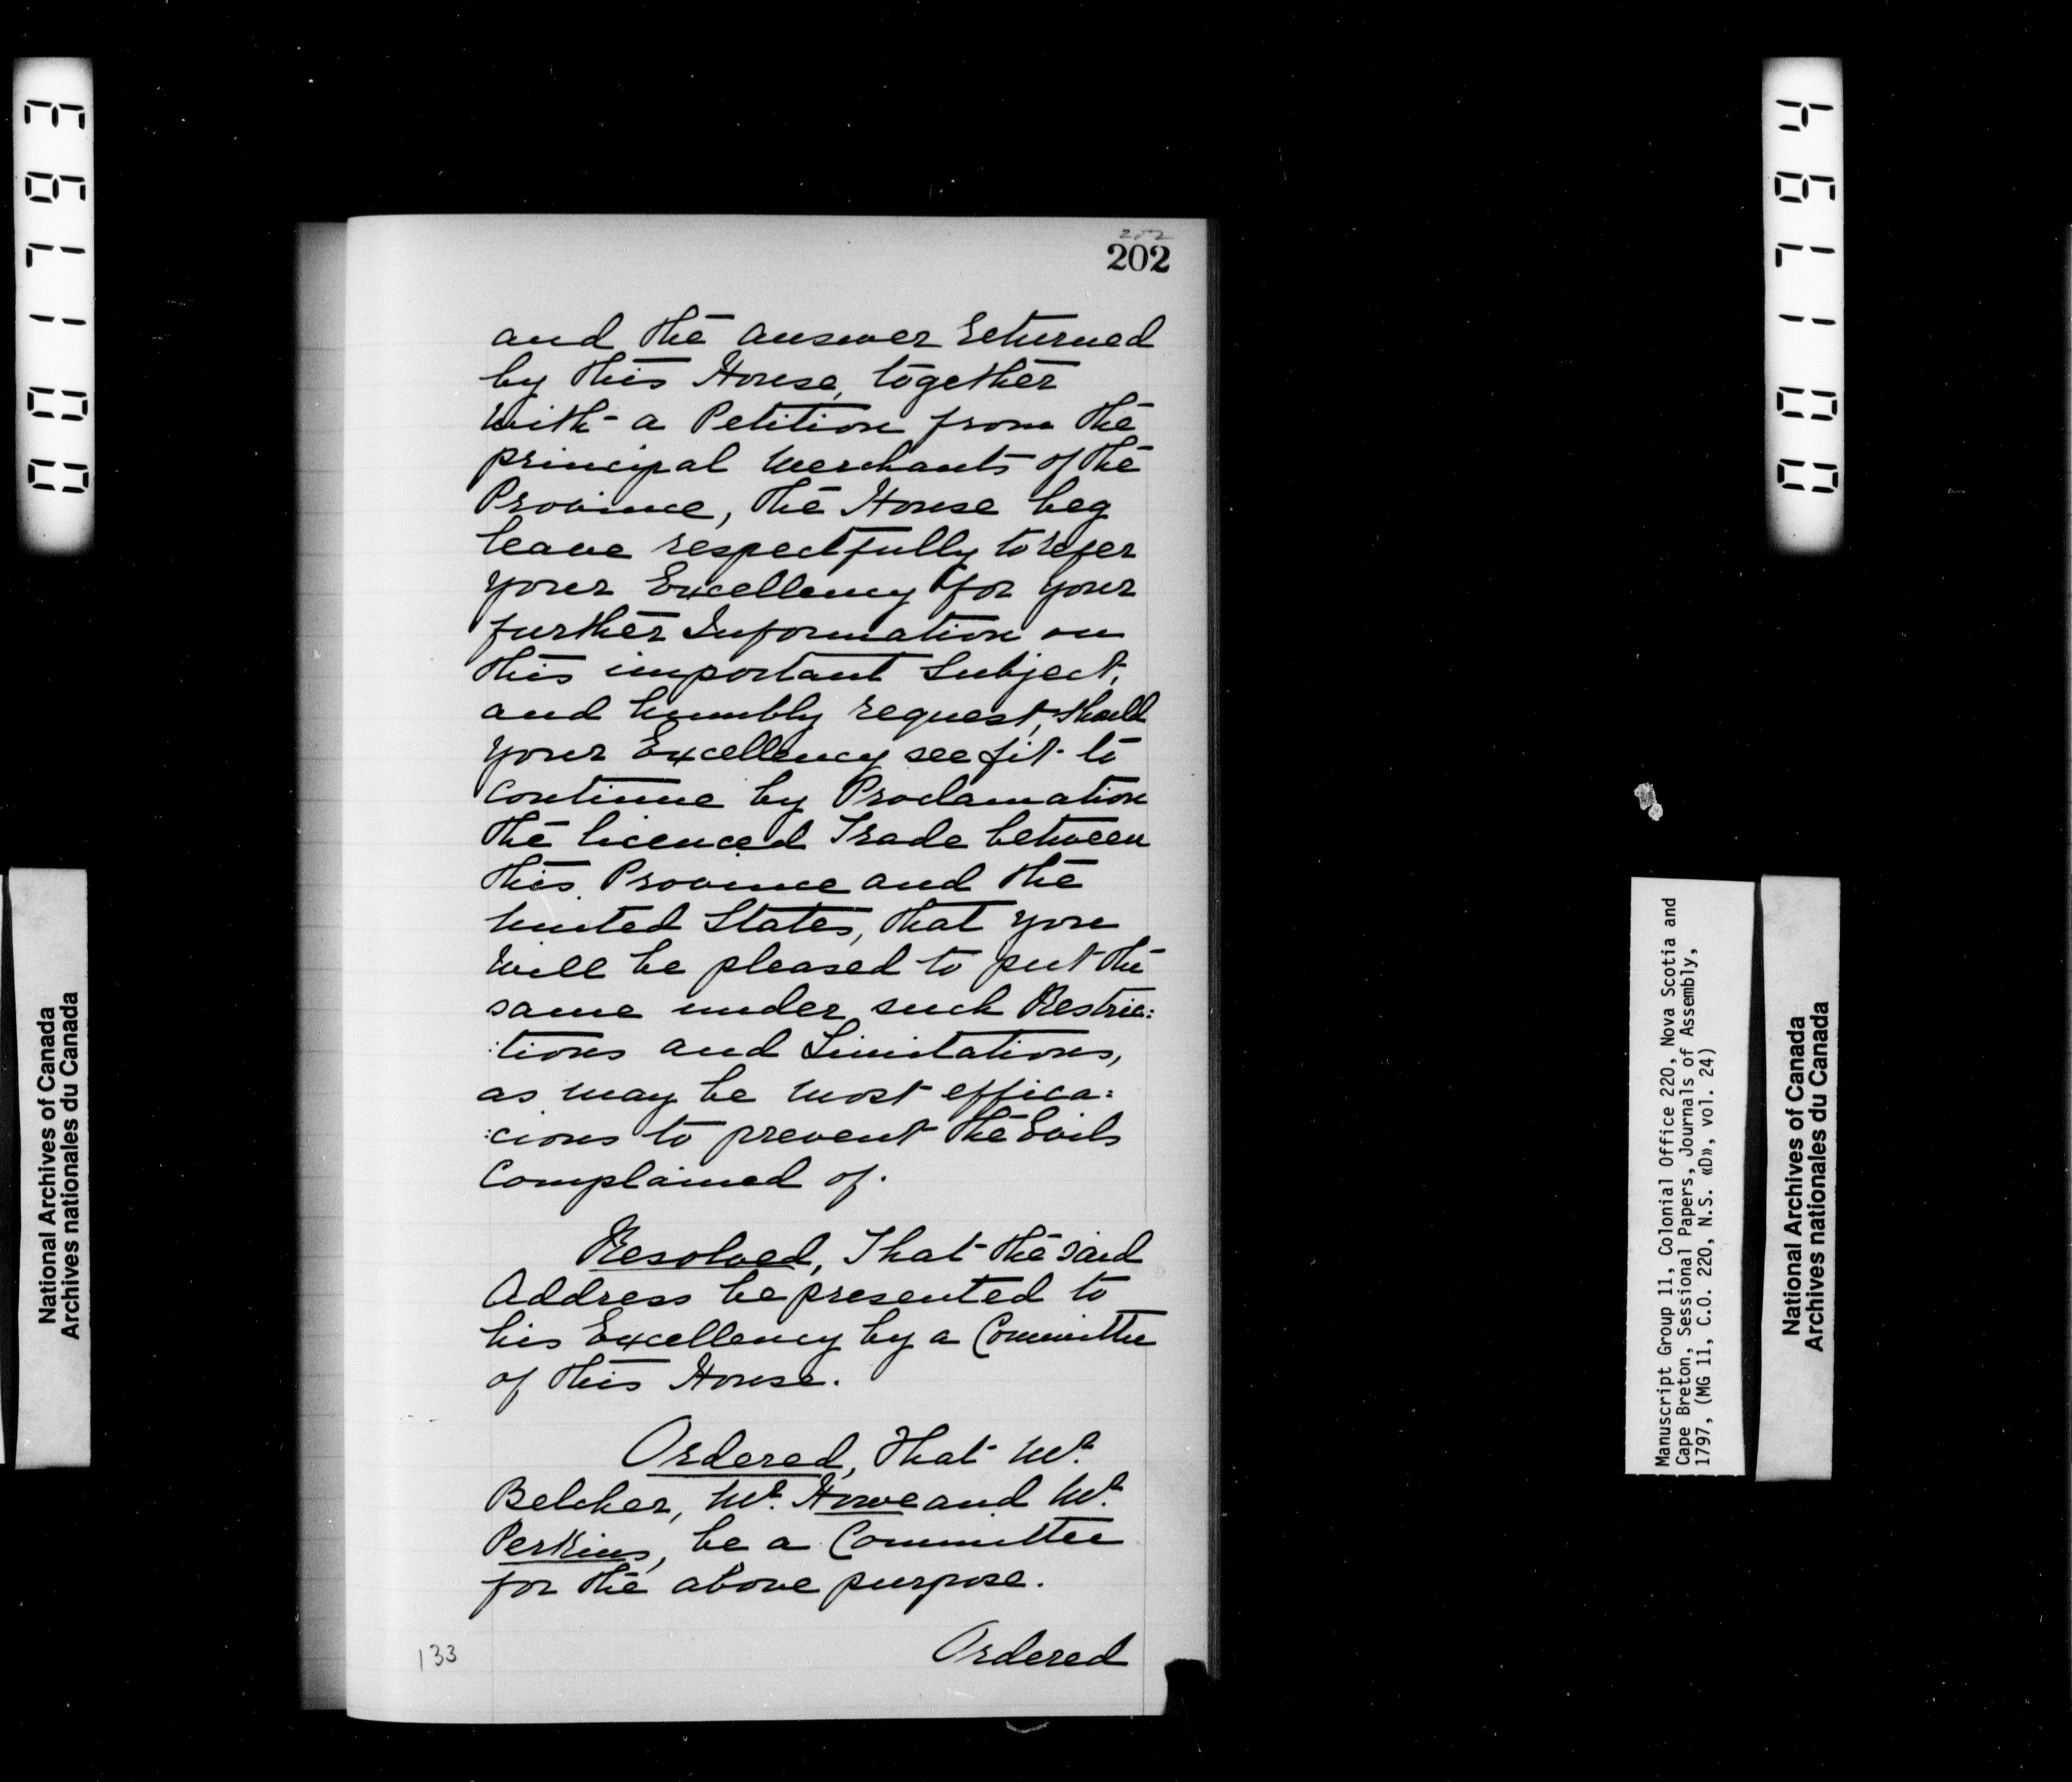 202
202
and the answer returned
by this House, together
with a Petition from the
principal Merchants of the
Province, the House beg
leave respectfully to refer
your Excellency for your
further Information on
this important Subject,
and humbly request, should
your Excellency see fit to
Continue by Proclamation
the licenced Trade between
this Province and the
United States, that you
Will be pleased to put the
same under such Restric:
:tions and Limitations,
as may be most effica:
:cious to prevent the Evils
Complained of.
Resolved, That the said
Address be presented to
his Excellency by a Committee
of this House.
Ordered, That Mr.
Belcher, Mr. Howe and Mr.
Perkins, be a Committee
for the above purpose.
Ordered
133
001793
001794
National Archives of Canada
Archives nationales du Canada
Manuscript Group 11, Colonial Office 220, Nova Scotia and
Cape Breton, Sessional Papers, Journals of Assembly,
1797, (MG 11, C.O. 220, N.S. «D», vol. 24)
National Archives of Canada
Archives nationales du Canada